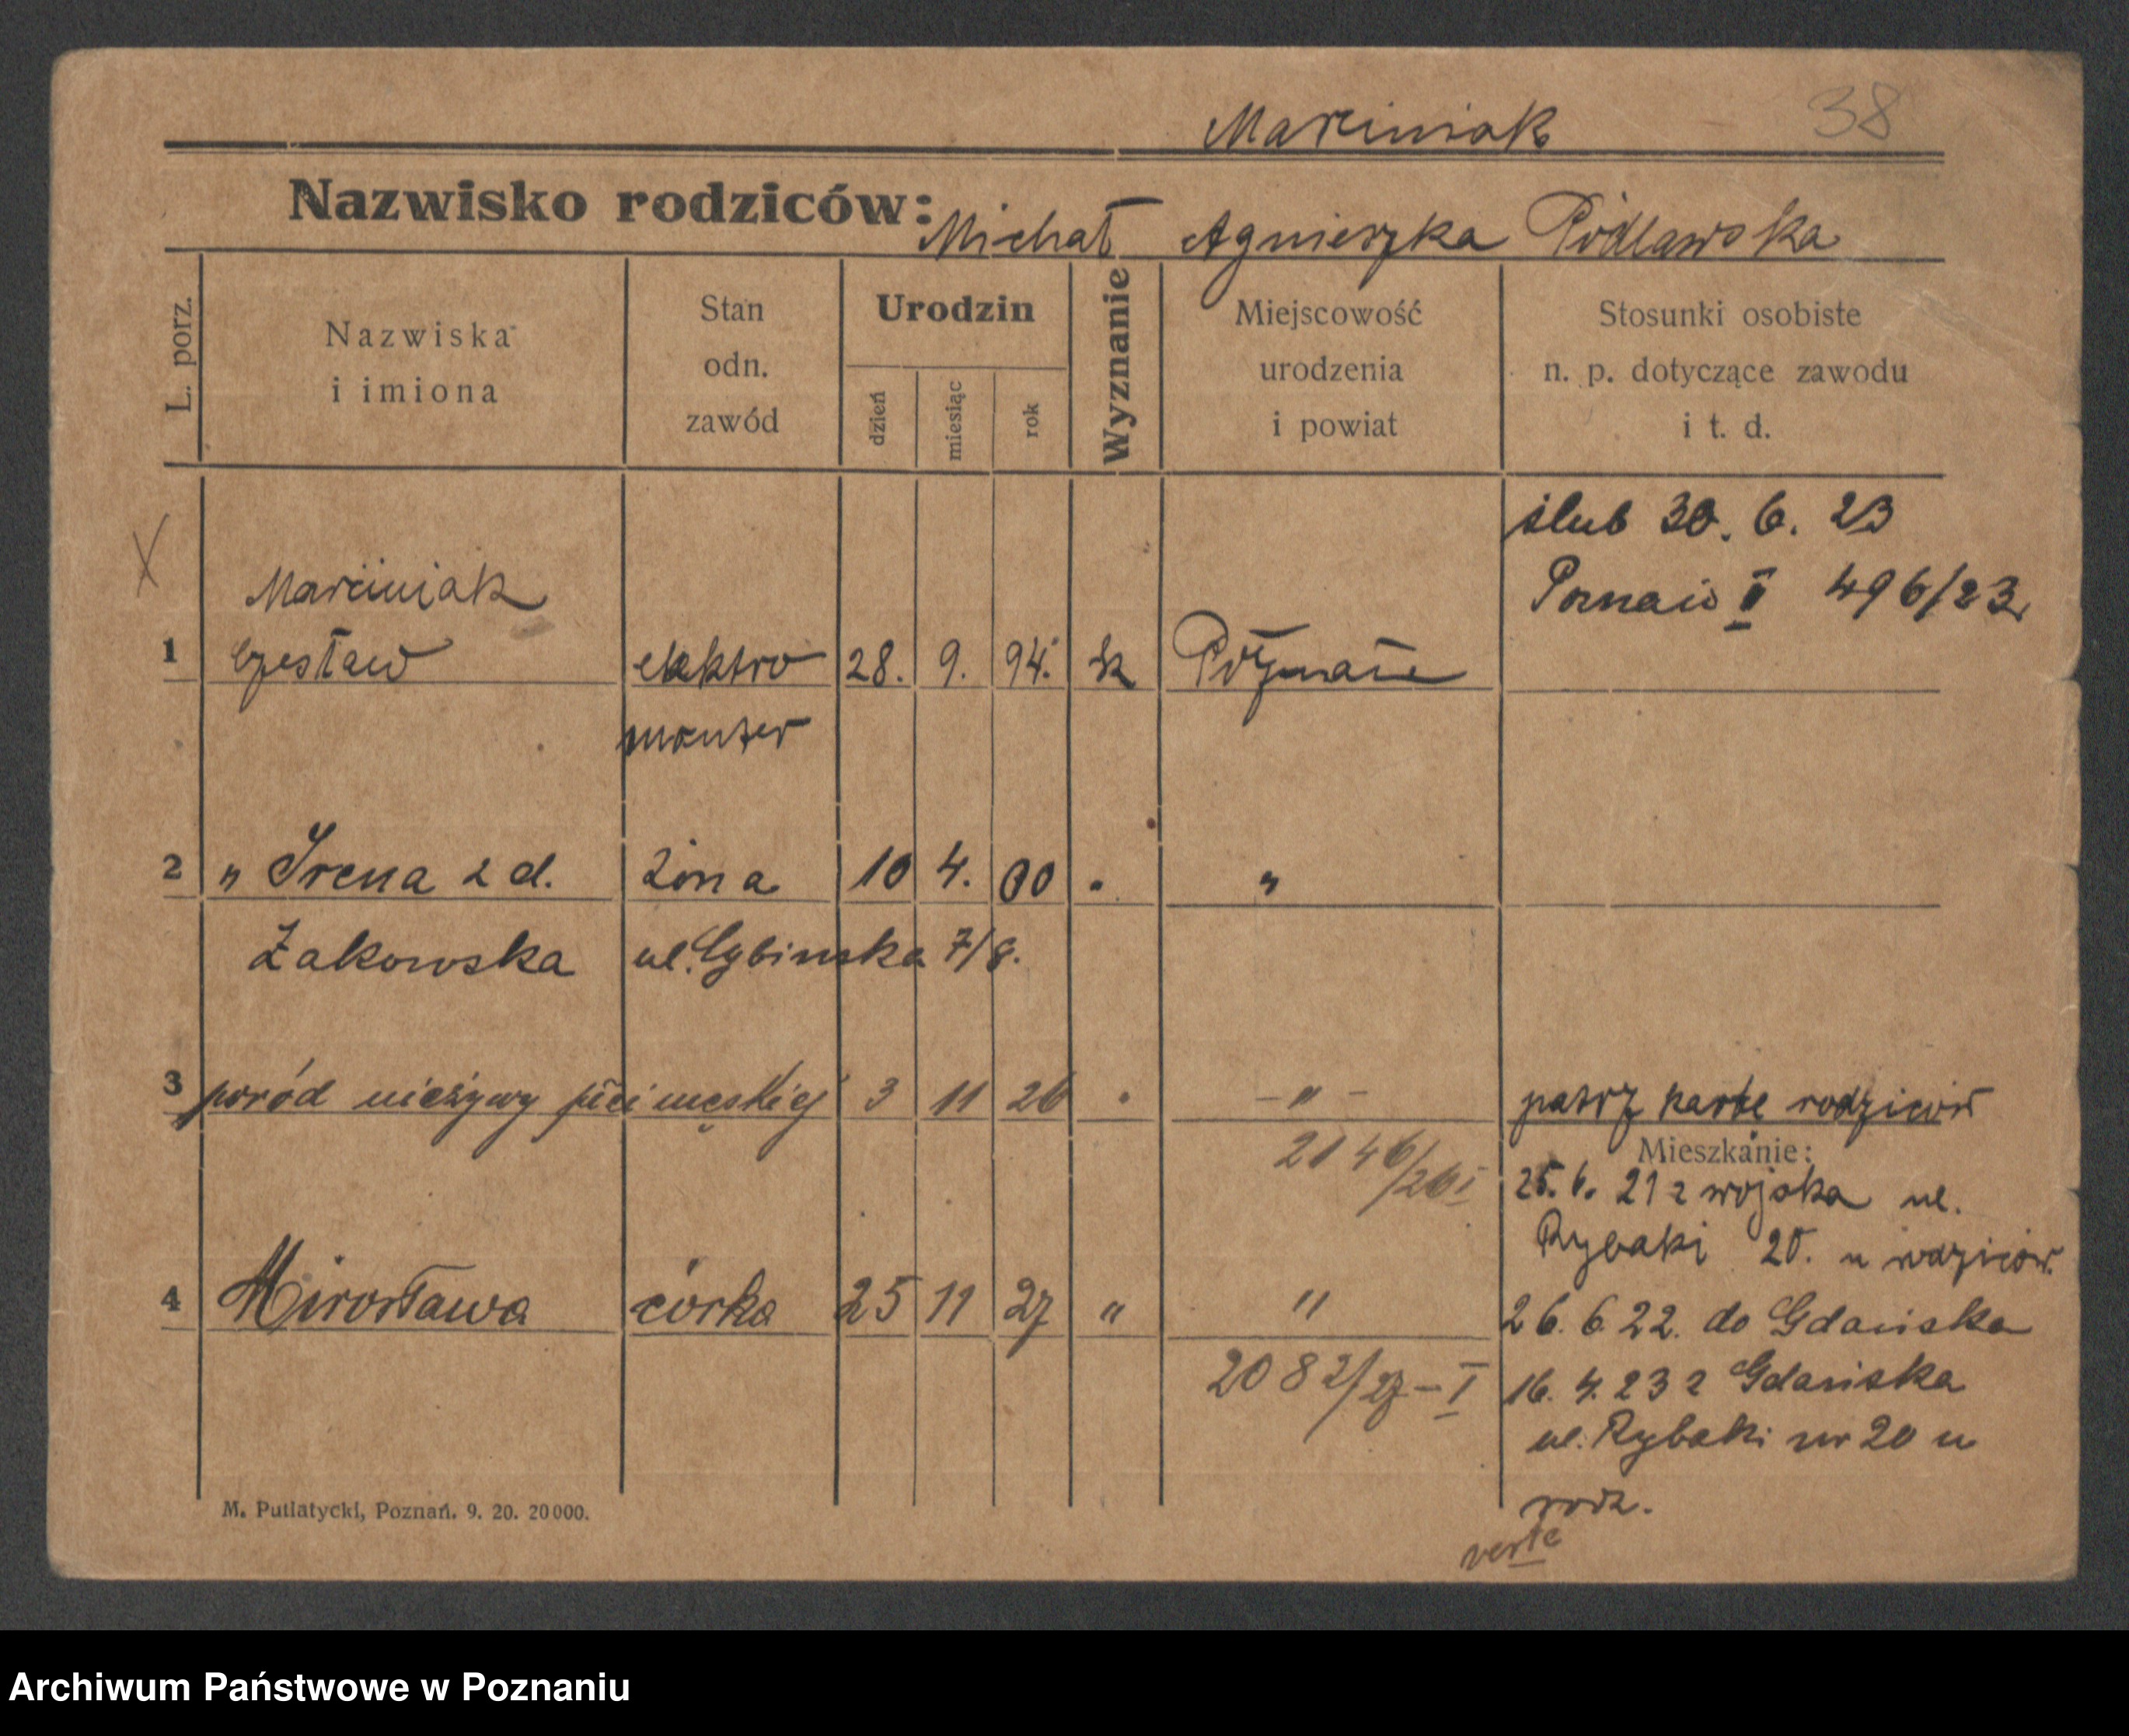 Marciniak 38
Nazwisko rodziców: Michał Agnieszka Pidlawska
L. porz.
Nazwiska
i imiona
Stan
odn.
zawód
Urodzin
dzień
miesiąc
rok
Wyznanie
Miejscowość
urodzenia
i powiat
Stosunki osobiste
n. p. dotyczące zawodu
i t. d.
ślub 30. 6. 23
Poznań II 496/23
X
Marciniak
1 Czesław elektro 28. 9. 94. k Poznań
monter
2 " Irena z d. żona 10 4. 00 " "
Żakowska ul. Cybinska 7/8.
3 poród nieżywy płci męskiej 3 11 26 " - " - patrz kartę rodziców
2146/26 I
Mieszkanie:
25. 6. 21 z wojska ul.
Rybaki 20. u rodziców.
4 Mirosława córka 25 11 27 " "
26. 6 22. do Gdańska
2082/27 - I
16. 4. 23 z Gdańska
ul. Rybaki nr 20 u
rodz.
verte
M. Putiatycki, Poznań. 9. 20. 20000.
Archiwum Państwowe w Poznaniu